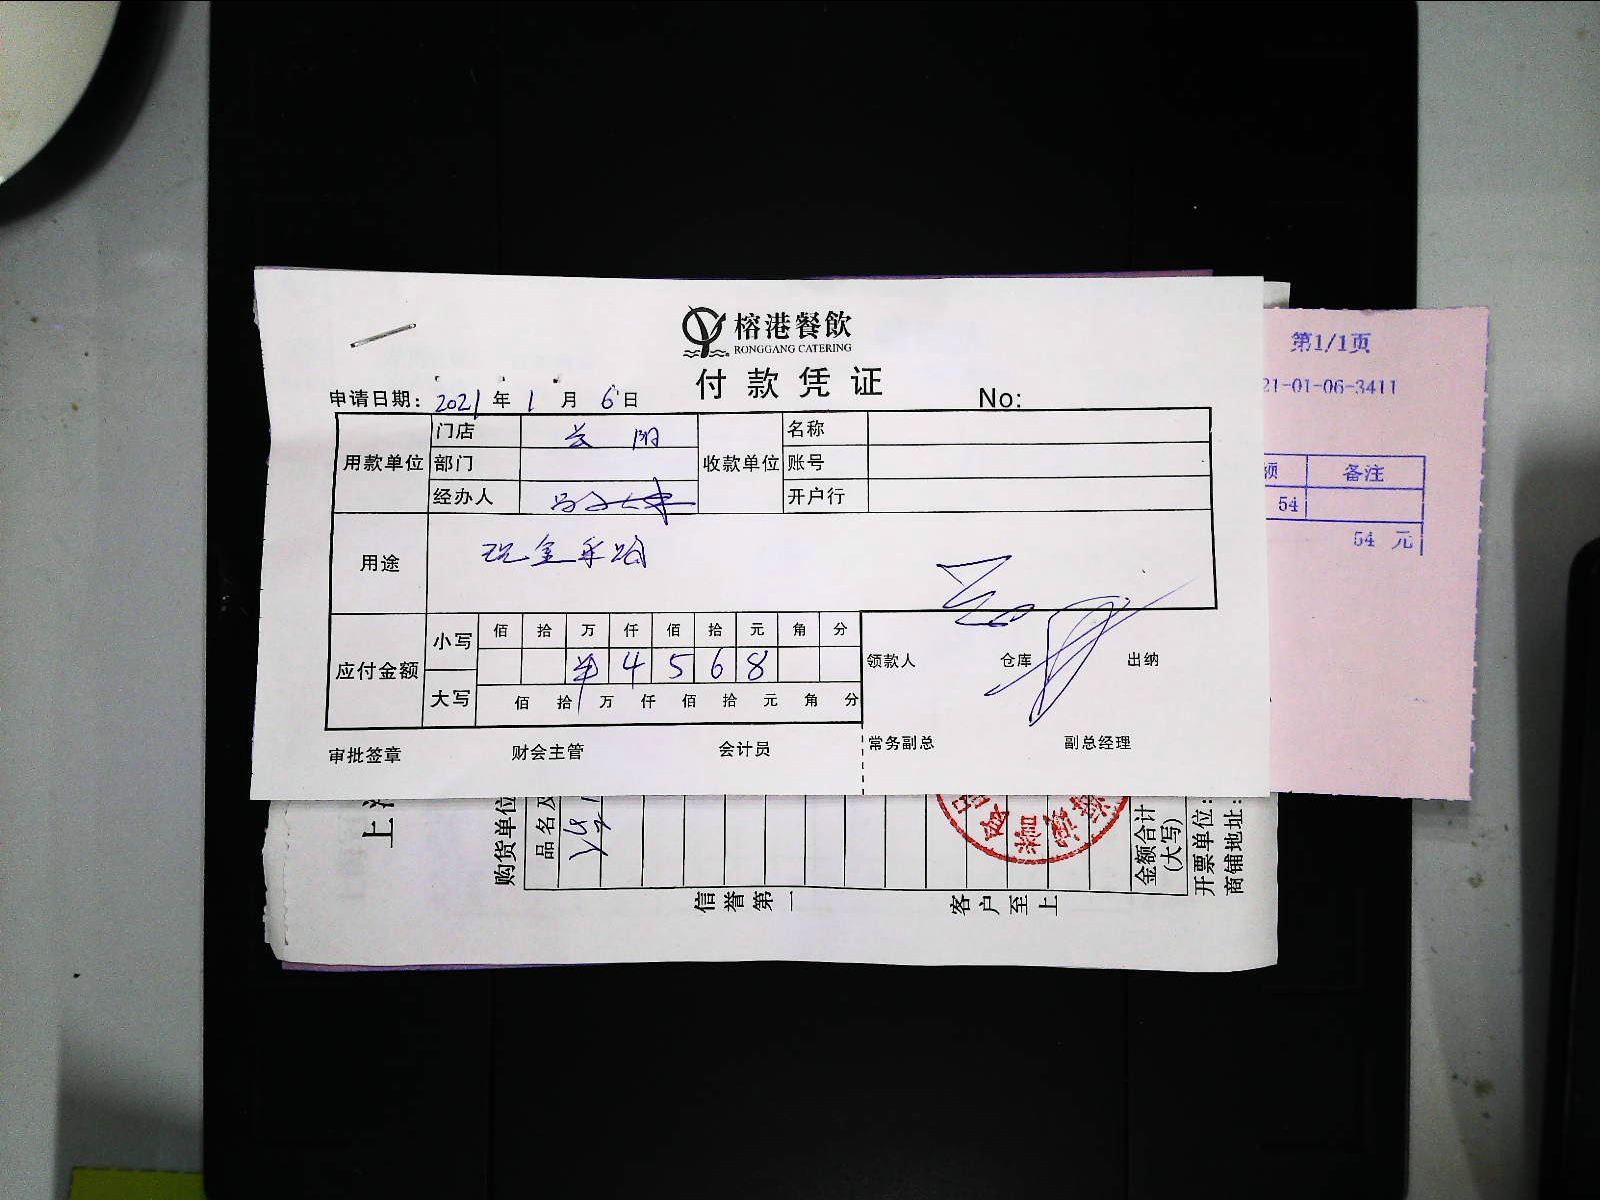 榕港餐飲
RONGGANG CATERING
付款凭证
申请日期: 2021 年 1 月 6 日 No:
用款单位 门店 收款单位 名称
部门 账号
经办人 开户行
用途 现金采购
应付金额 小写 佰 拾 万 仟 佰 拾 元 角 分
¥ 4 5 6 8
大写 佰 拾 万 仟 佰 拾 元 角 分
领款人 仓库 出纳
审批签章 财会主管 会计员 常务副总 副总经理
第1/1页
21-01-06-3411
额 备注
54
54 元
上
购货单位
品名及
信誉第一
客户至上
金额合计
(大写)
开票单位:
商铺地址: